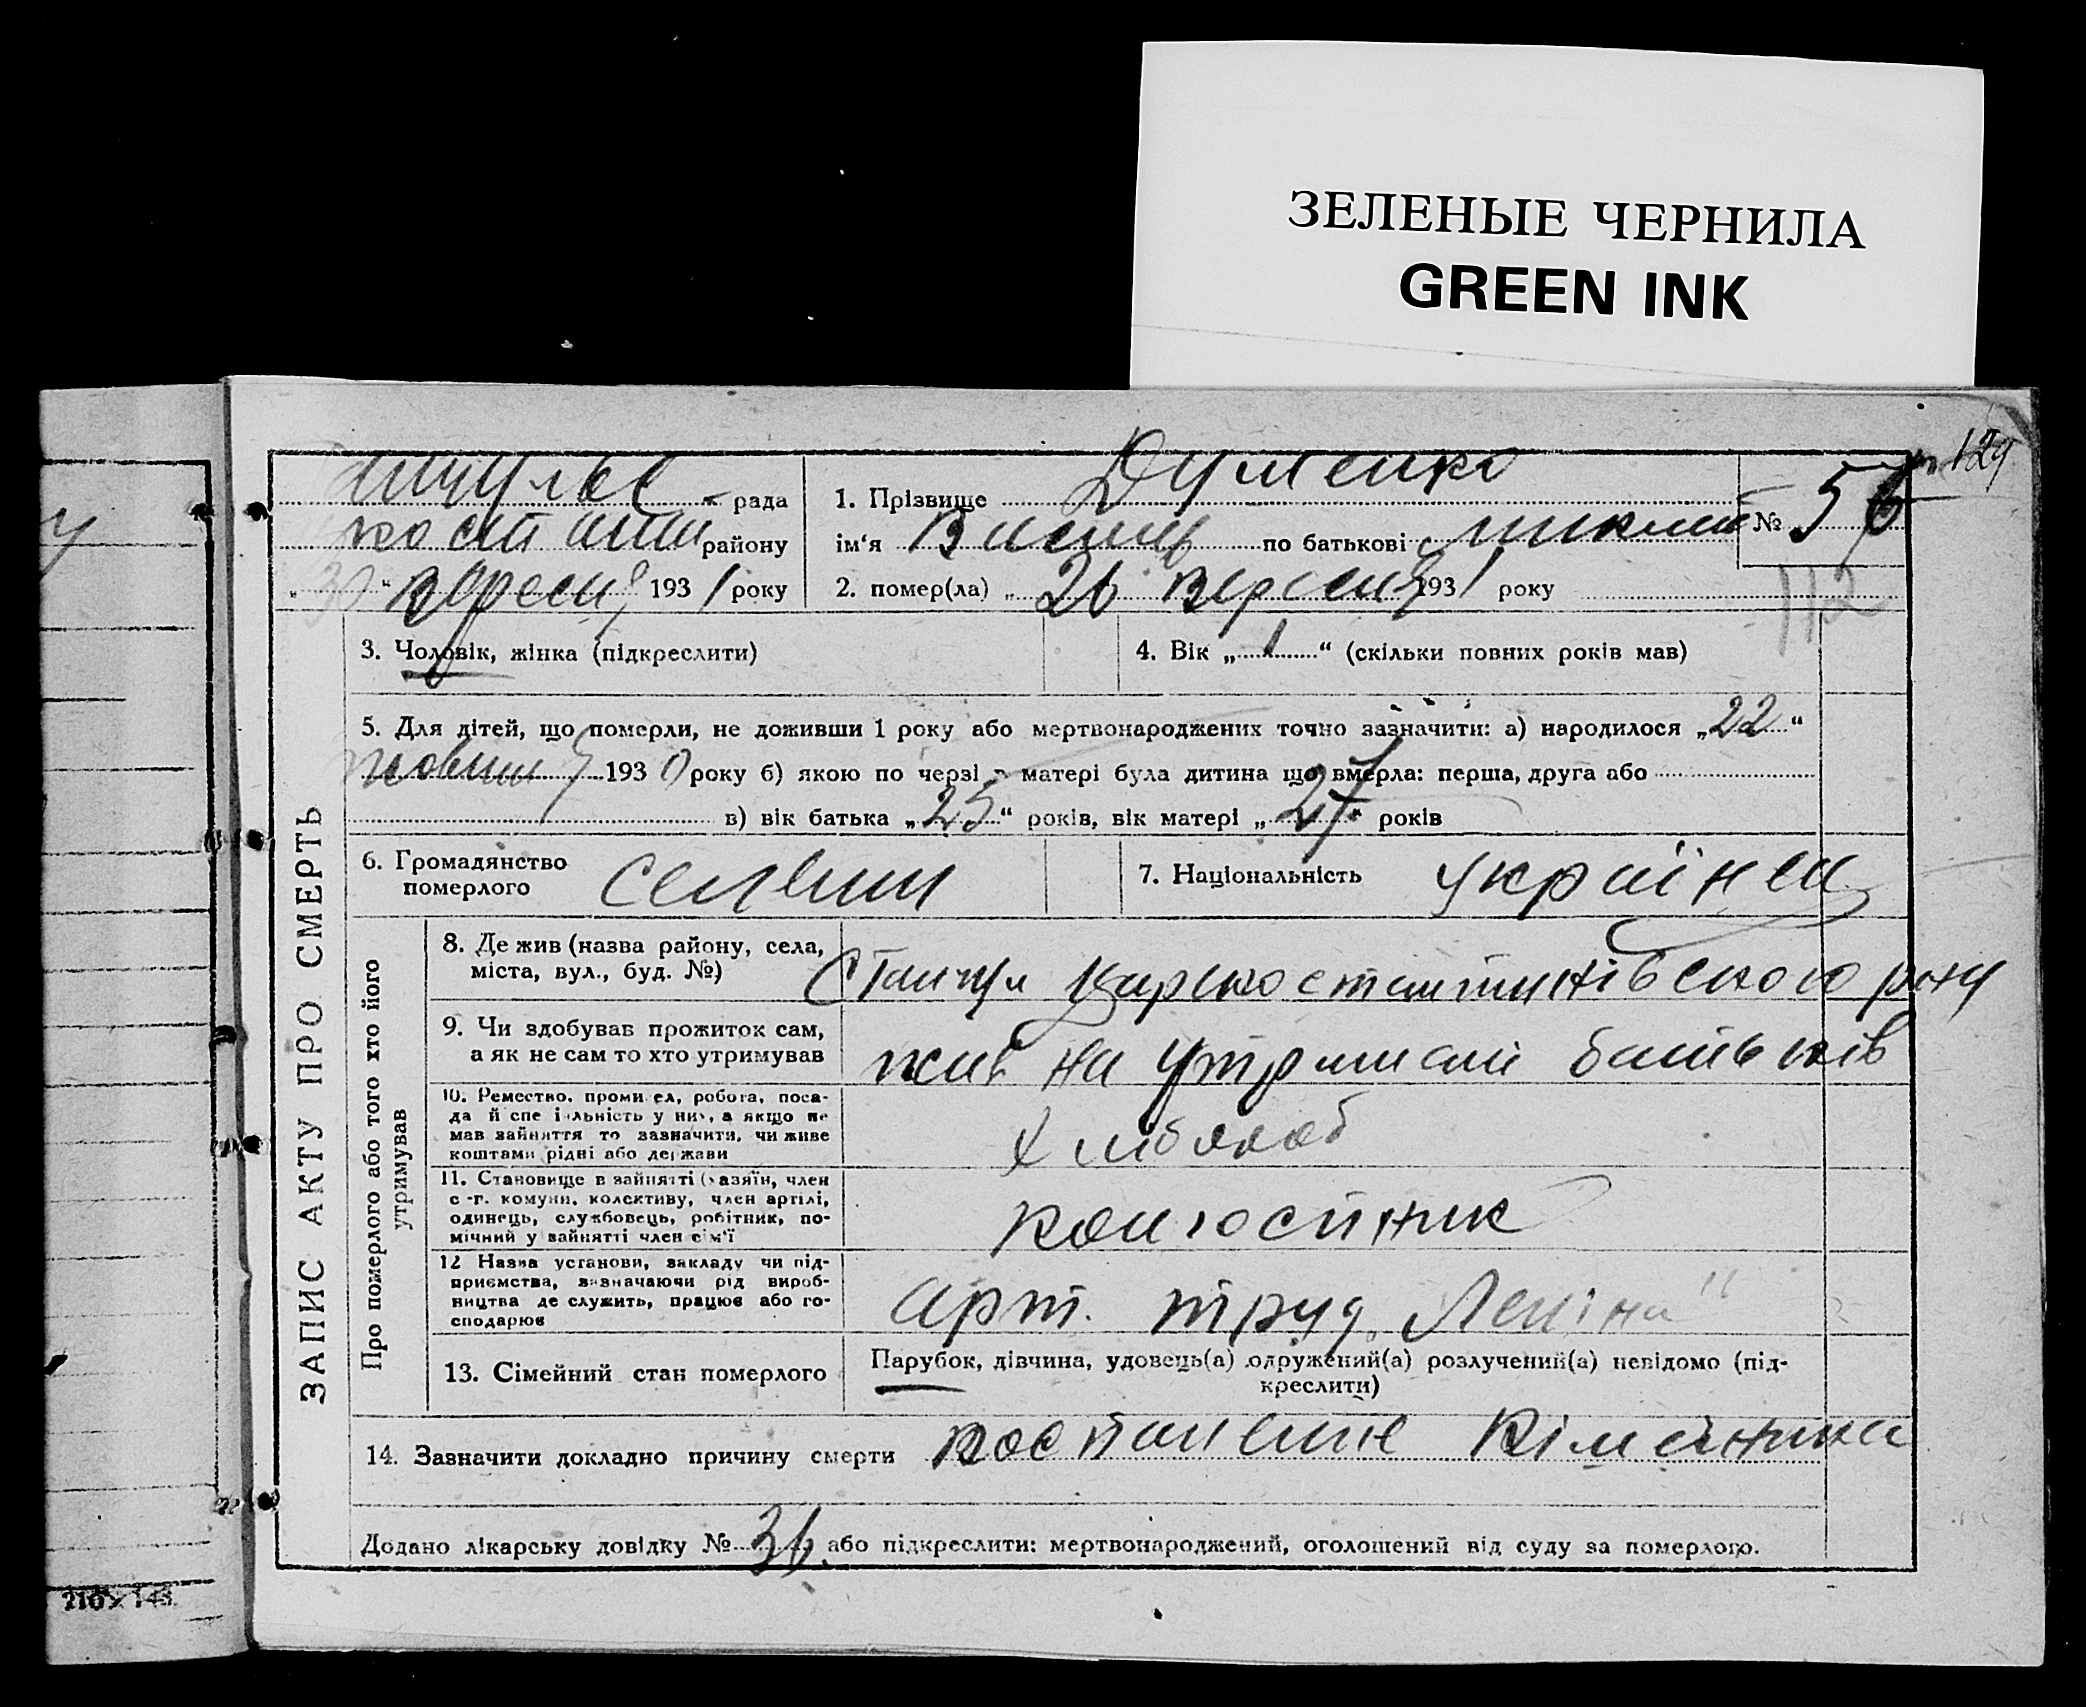 ЗЕЛЕНЫЕ ЧЕРНИЛА
GREEN INK
129
рада
району
30 " вересня 1931 року
1. Прізвище Думенко
№ 56
ім'я Василь по батькові
2. помер(ла) " 26 вересня 1931 року
112
ЗАПИС АКТУ ПРО СМЕРТЬ
3. Чоловік, жінка (підкреслити)
4. Вік „ 1 “ (скільки повних років мав)
5. Для дітей, що померли, не доживши 1 року або мертвонароджених точно зазначити: а) народилося „ 22 “
жовтня 1930 року б) якою по черзі в матері була дитина що вмерла: перша, друга або
в) вік батька „ 25 “ років, вік матері „ 27 “ років
6. Громадянство
померлого селянин
7. Національність українец
Про померлого або того хто його
утримував
8. Де жив (назва району, села,
міста, вул., буд. №)
9. Чи здобував прожиток сам,
а як не сам то хто утримував
жив на утриманні батьків
10. Ремество, промисел, робота, поса-
да й спеціяльність у них, а якщо не
мав зайняття то зазначити, чи живе
коштами рідні або держави
хлібороб
11. Становище в зайнятті (хазяїн, член
с.-г. комуни, колективу, член артілі,
одинець, службовець, робітник, по-
мічний у зайнятті член сім'ї
колгоспник
12 Назва установи, закладу чи під-
приємства, зазначаючи рід вироб-
ництва де служить, працює або го-
сподарює
арт. труд „Леніна"
13. Сімейний стан померлого
Парубок, дівчина, удовець(а) одружений(а) розлучений(а) невідомо (під-
креслити)
14. Зазначити докладно причину смерти
Додано лікарську довідку № 36 або підкреслити: мертвонароджений, оголошений від суду за померлого.
210×148.